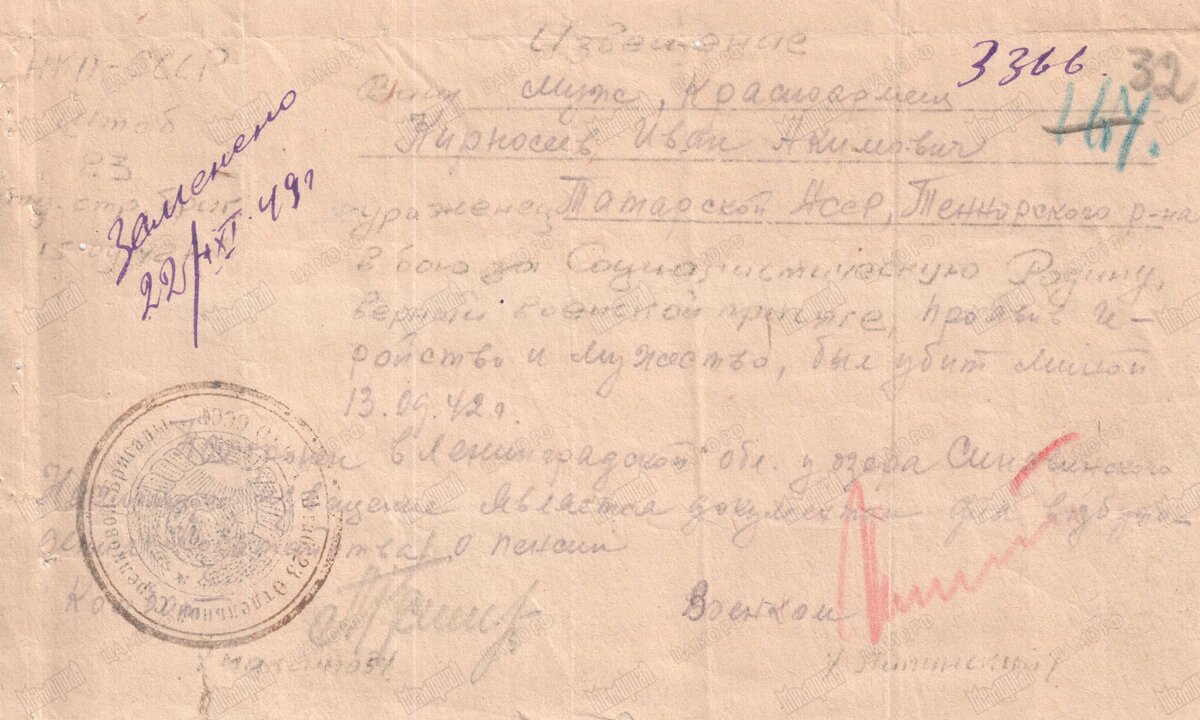 Извещение
3366.
32
НКО-СССР
Штаб
23
отд. стр. бриг.
15.09.42
Заменено
22/XI.49г
Ваш муж, Красноармеец
Кирносов Иван Акимович
уроженец Татарской АССР, Тенькирского р-на
в бою за Социалистическую Родину,
верный военской присяге, проявив ге-
ройство и мужество, был убит миной
13.09.42г.
Похоронен в Ленинградской обл. у озера Синявинского
Настоящее извещение является документом для возбуж-
дения ходатайства о пенсии
Военком
23 Отдельной Стрелковой Бригады
СССР